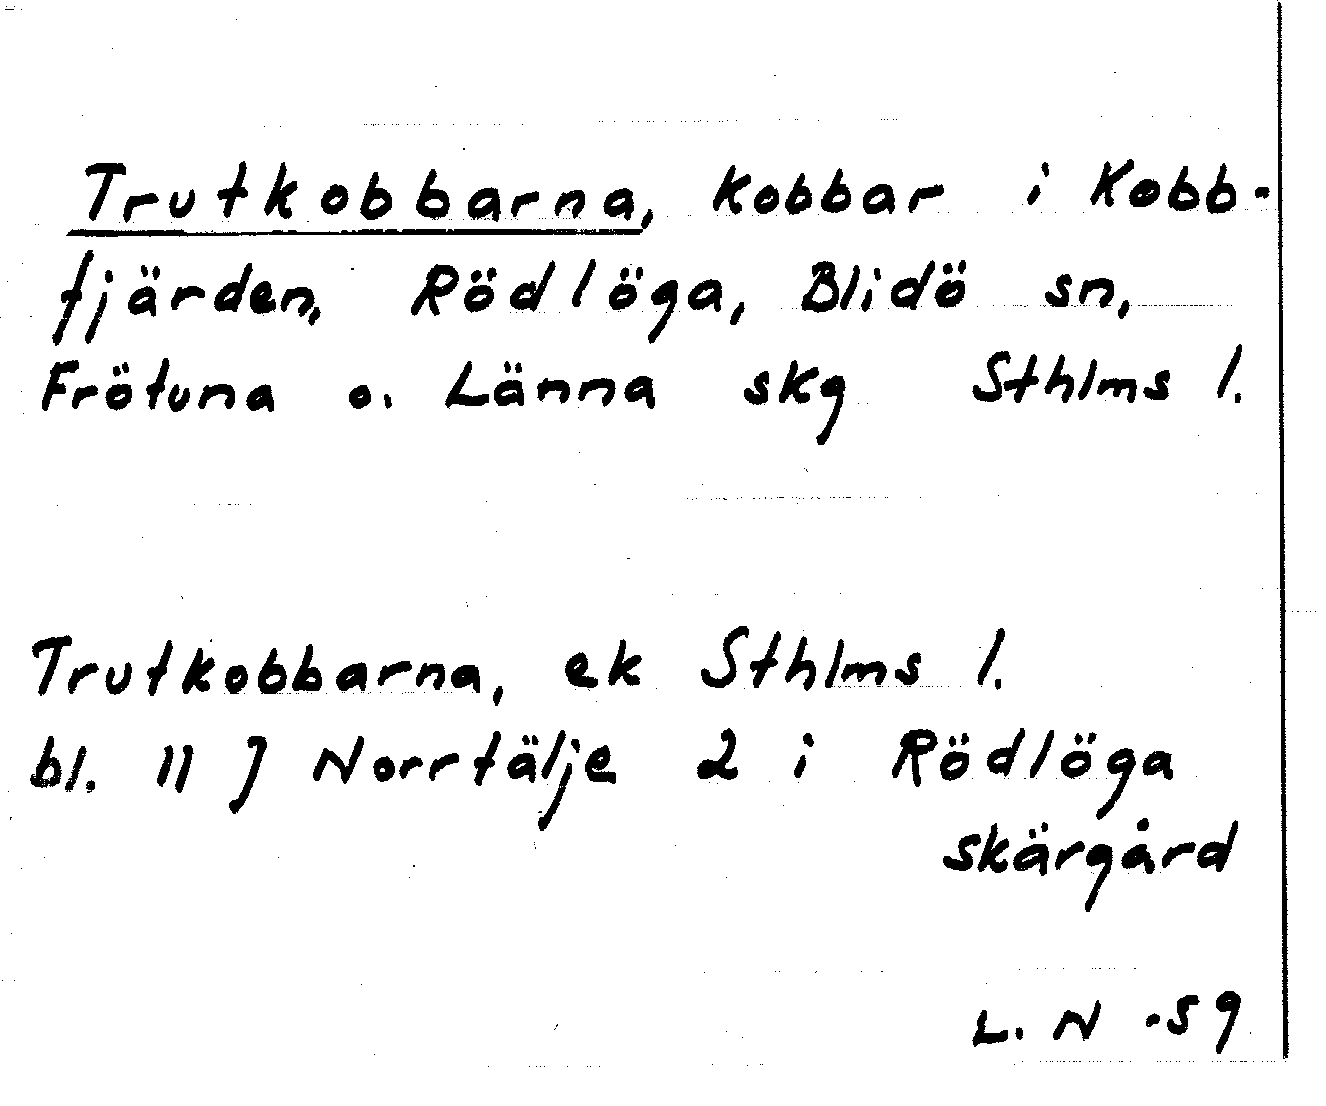 Trutkobbarna, kobbar i Kobb-
fjärden, Rödlöga, Blidö sn,
Frötuna o. Länna skg Sthlms l.
Trutkobbarna, ek Sthlms l.
bl. 11 J Norrtälje 2 i Rödlöga
skärgård
L. N -59